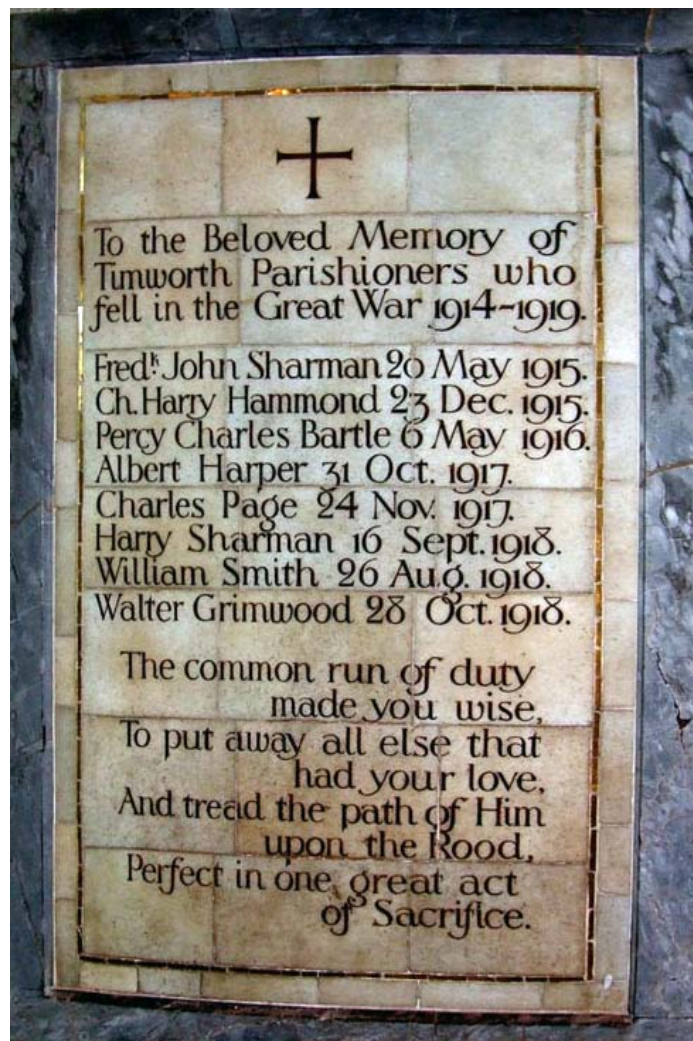 To the Beloved Memory of
Timworth Parishioners who
fell in the Great War 1914-1919.
Fredk John Sharman 20 May 1915.
Ch. Harry Hammond 23 Dec. 1915.
Percy Charles Bartle 6 May 1916.
Albert Harper 31 Oct. 1917.
Charles Page 24 Nov. 1917.
Harry Sharman 16 Sept. 1918.
William Smith 26 Aug. 1918.
Walter Grimwood 28 Oct. 1918.
The common run of duty
made you wise,
To put away all else that
had your love,
And tread the path of Him
upon the Rood,
Perfect in one great act
of Sacrifice.